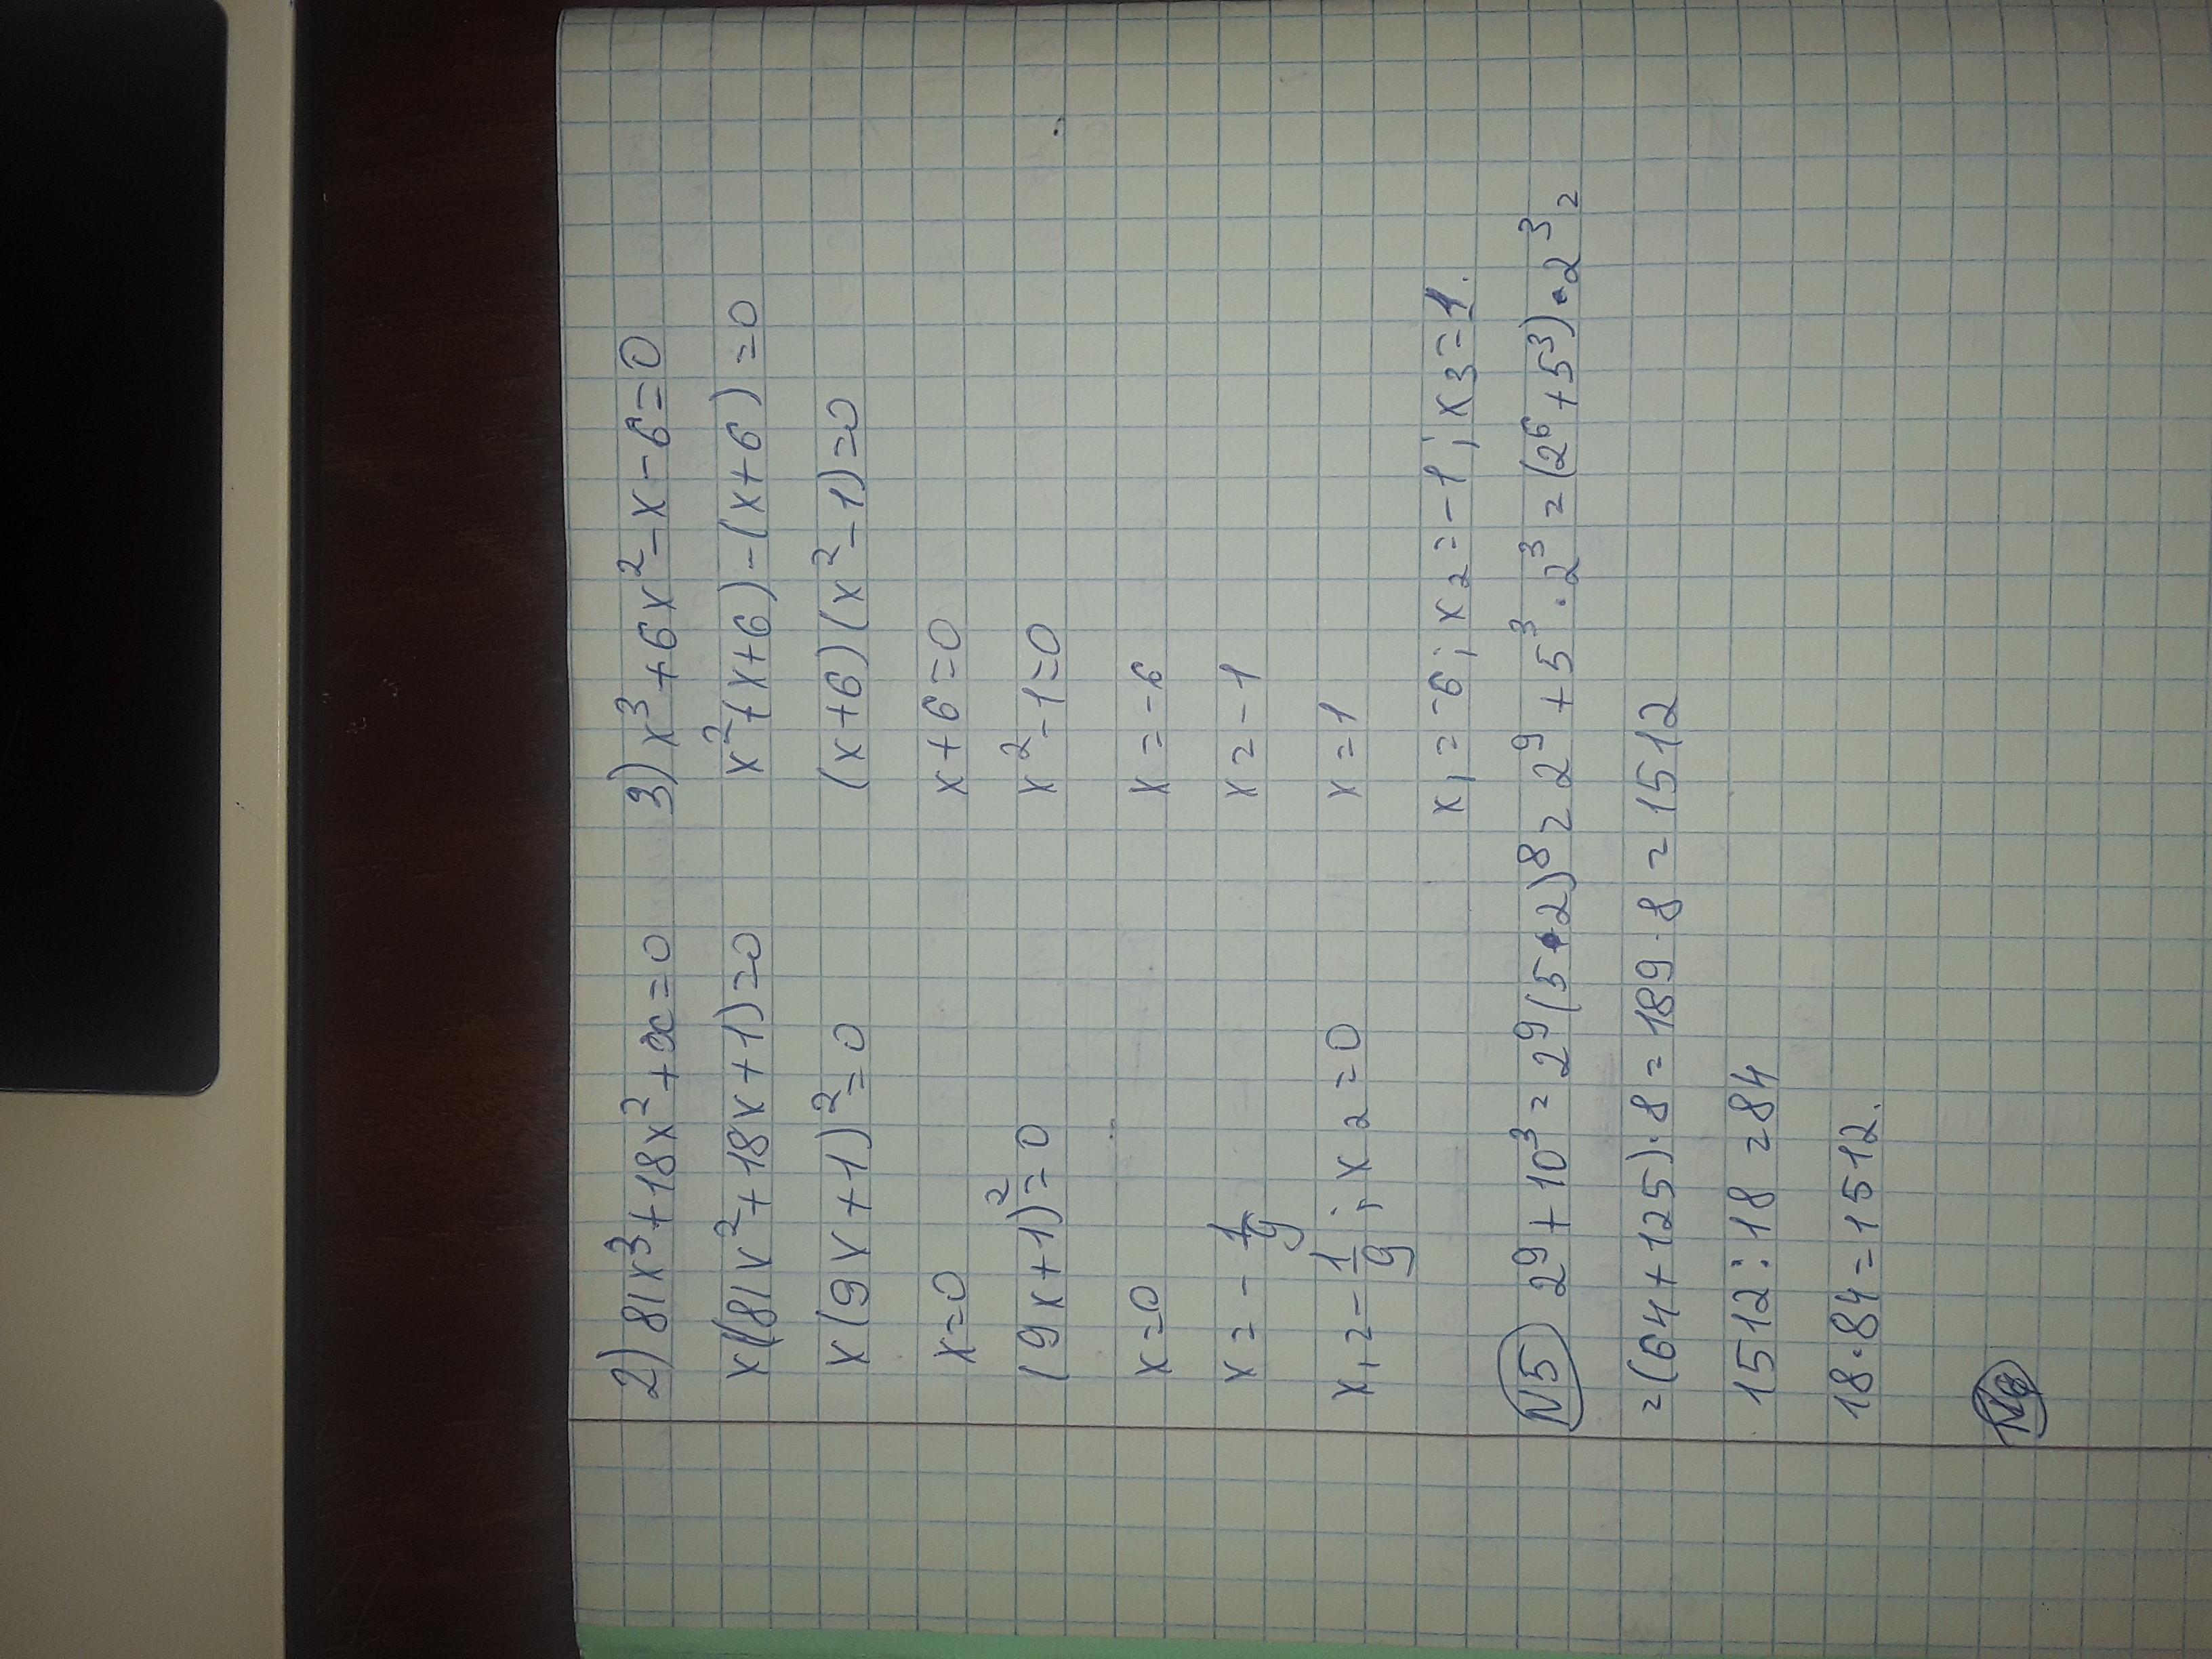 2) 81x³+18x²+x=0
x(81x²+18x+1)=0
x(9x+1)²=0
x=0
(9x+1)²=0
x=0
x=-1/9
x₁=-1/9; x₂=0
3) x³+6x²-x-6=0
x²(x+6)-(x+6)=0
(x+6)(x²-1)=0
x+6=0
x²-1=0
x=-6
x=-1
x=1
x₁=-6; x₂=-1; x₃=1.
N5 2⁹+10³=2⁹(5·2)⁸=2⁹+5³·2³=(2⁶+5³)·2³=
=(64+125)·8=189·8=1512
1512:18=84
18·84=1512.